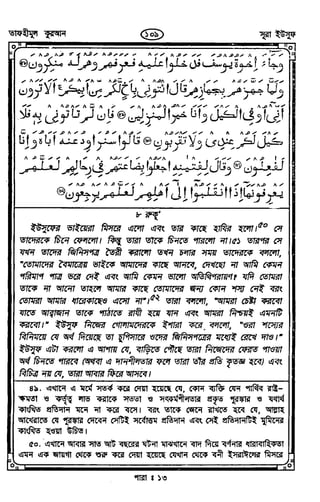 তাফহীমুল কুরআন ১০৯ সূরা ইউসুফ
وَجَاءَ إِخْوَةُ يُوسُفَ فَدَخَلُوا عَلَيْهِ فَعَرَفَهُمْ وَهُمْ لَهُ مُنْكِرُونَ
وَلَمَّا جَهَّزَهُمْ بِجَهَازِهِمْ قَالَ ائْتُونِي بِأَخٍ لَكُمْ مِنْ أَبِيكُمْ أَلَا تَرَوْنَ
أَنِّي أُوفِي الْكَيْلَ وَأَنَا خَيْرُ الْمُنْزِلِينَ فَإِنْ لَمْ تَأْتُونِي بِهِ فَلَا
كَيْلَ لَكُمْ عِنْدِي وَلَا تَقْرَبُونِ قَالُوا سَنُرَاوِدُ عَنْهُ أَبَاهُ وَإِنَّا
لَفَاعِلُونَ وَقَالَ لِفِتْيَانِهِ اجْعَلُوا بِضَاعَتَهُمْ فِي رِحَالِهِمْ لَعَلَّهُمْ
يَعْرِفُونَهَا إِذَا انْقَلَبُوا إِلَى أَهْلِهِمْ لَعَلَّهُمْ يَرْجِعُونَ
৮ রুকূ'
ইউসুফের ভাইয়েরা মিসরে এলো এবং তার কাছে হাযির হলো।৫০ সে
তাদেরকে চিনে ফেললো। কিন্তু তারা তাকে চিনতে পারলো না।৫১ তারপর সে
যখন তাদের জিনিসপত্র তৈরী করালো তখন চলার সময় তাদেরকে বললো,
"তোমাদের বৈমাত্রেয় ভাইকে আমাদের কাছে আনবে, দেখছো না আমি কেমন
পরিমাপ পাত্র ভরে দেই এবং আমি কেমন ভালো অতিথিপরায়ণ? যদি তোমরা
তাকে না আনো তাহলে আমার কাছে তোমাদের জন্য কোন শস্য নেই বরং
তোমরা আমার ধারেকাছেও এসো না"।৫২ তারা বললো, "আমরা চেষ্টা করবো
যাতে আব্বাজান তাকে পাঠাতে রাযী হয়ে যান এবং আমরা নিশ্চয়ই এমনটি
করবো।" ইউসুফ নিজের গোলামদেরকে ইশারা করে বললো, "ওরা শস্যের
বিনিময়ে যে অর্থ দিয়েছে তা চুপিসারে ওদের জিনিসপত্রের মধ্যেই রেখে দাও।"
ইউসুফ এটা করলো এ আশায় যে, বাড়িতে পৌঁছে তারা নিজেদের ফেরত পাওয়া
অর্থ চিনতে পারবে (অথবা এ দানশীলতার ফলে তারা তাঁর প্রতি কৃতজ্ঞ হবে) এবং
বিচিত্র নয় যে, তারা আবার ফিরে আসবে।
৪৯. এখানে এ মর্মে সতর্ক করে দেয়া হয়েছে যে, কোন ব্যক্তি যেন পার্থিব রাষ্ট্র-
ক্ষমতা ও কর্তৃত্ব লাভ করাকে সততা ও সৎকর্মশীলতার প্রকৃত পুরস্কার ও যথার্থ
কাংখিত প্রতিদান মনে না করে বসে। বরং তাকে জেনে রাখতে হবে যে, আল্লাহ
আখেরাতে যে পুরস্কার দেবেন সেটিই সর্বোত্তম প্রতিদান এবং সেই প্রতিদানটিই মুমিনের
কাংখিত হওয়া উচিত।
৫০. এখানে আবার সাত আট বছরের ঘটনা মাঝখানে বাদ দিয়ে বর্ণনার ধারাবাহিকতা
এমন এক জায়গা থেকে শুরু করে দেয়া হয়েছে যেখান থেকে বনী ইসরাঈলের মিসরে
পারা : ১৩